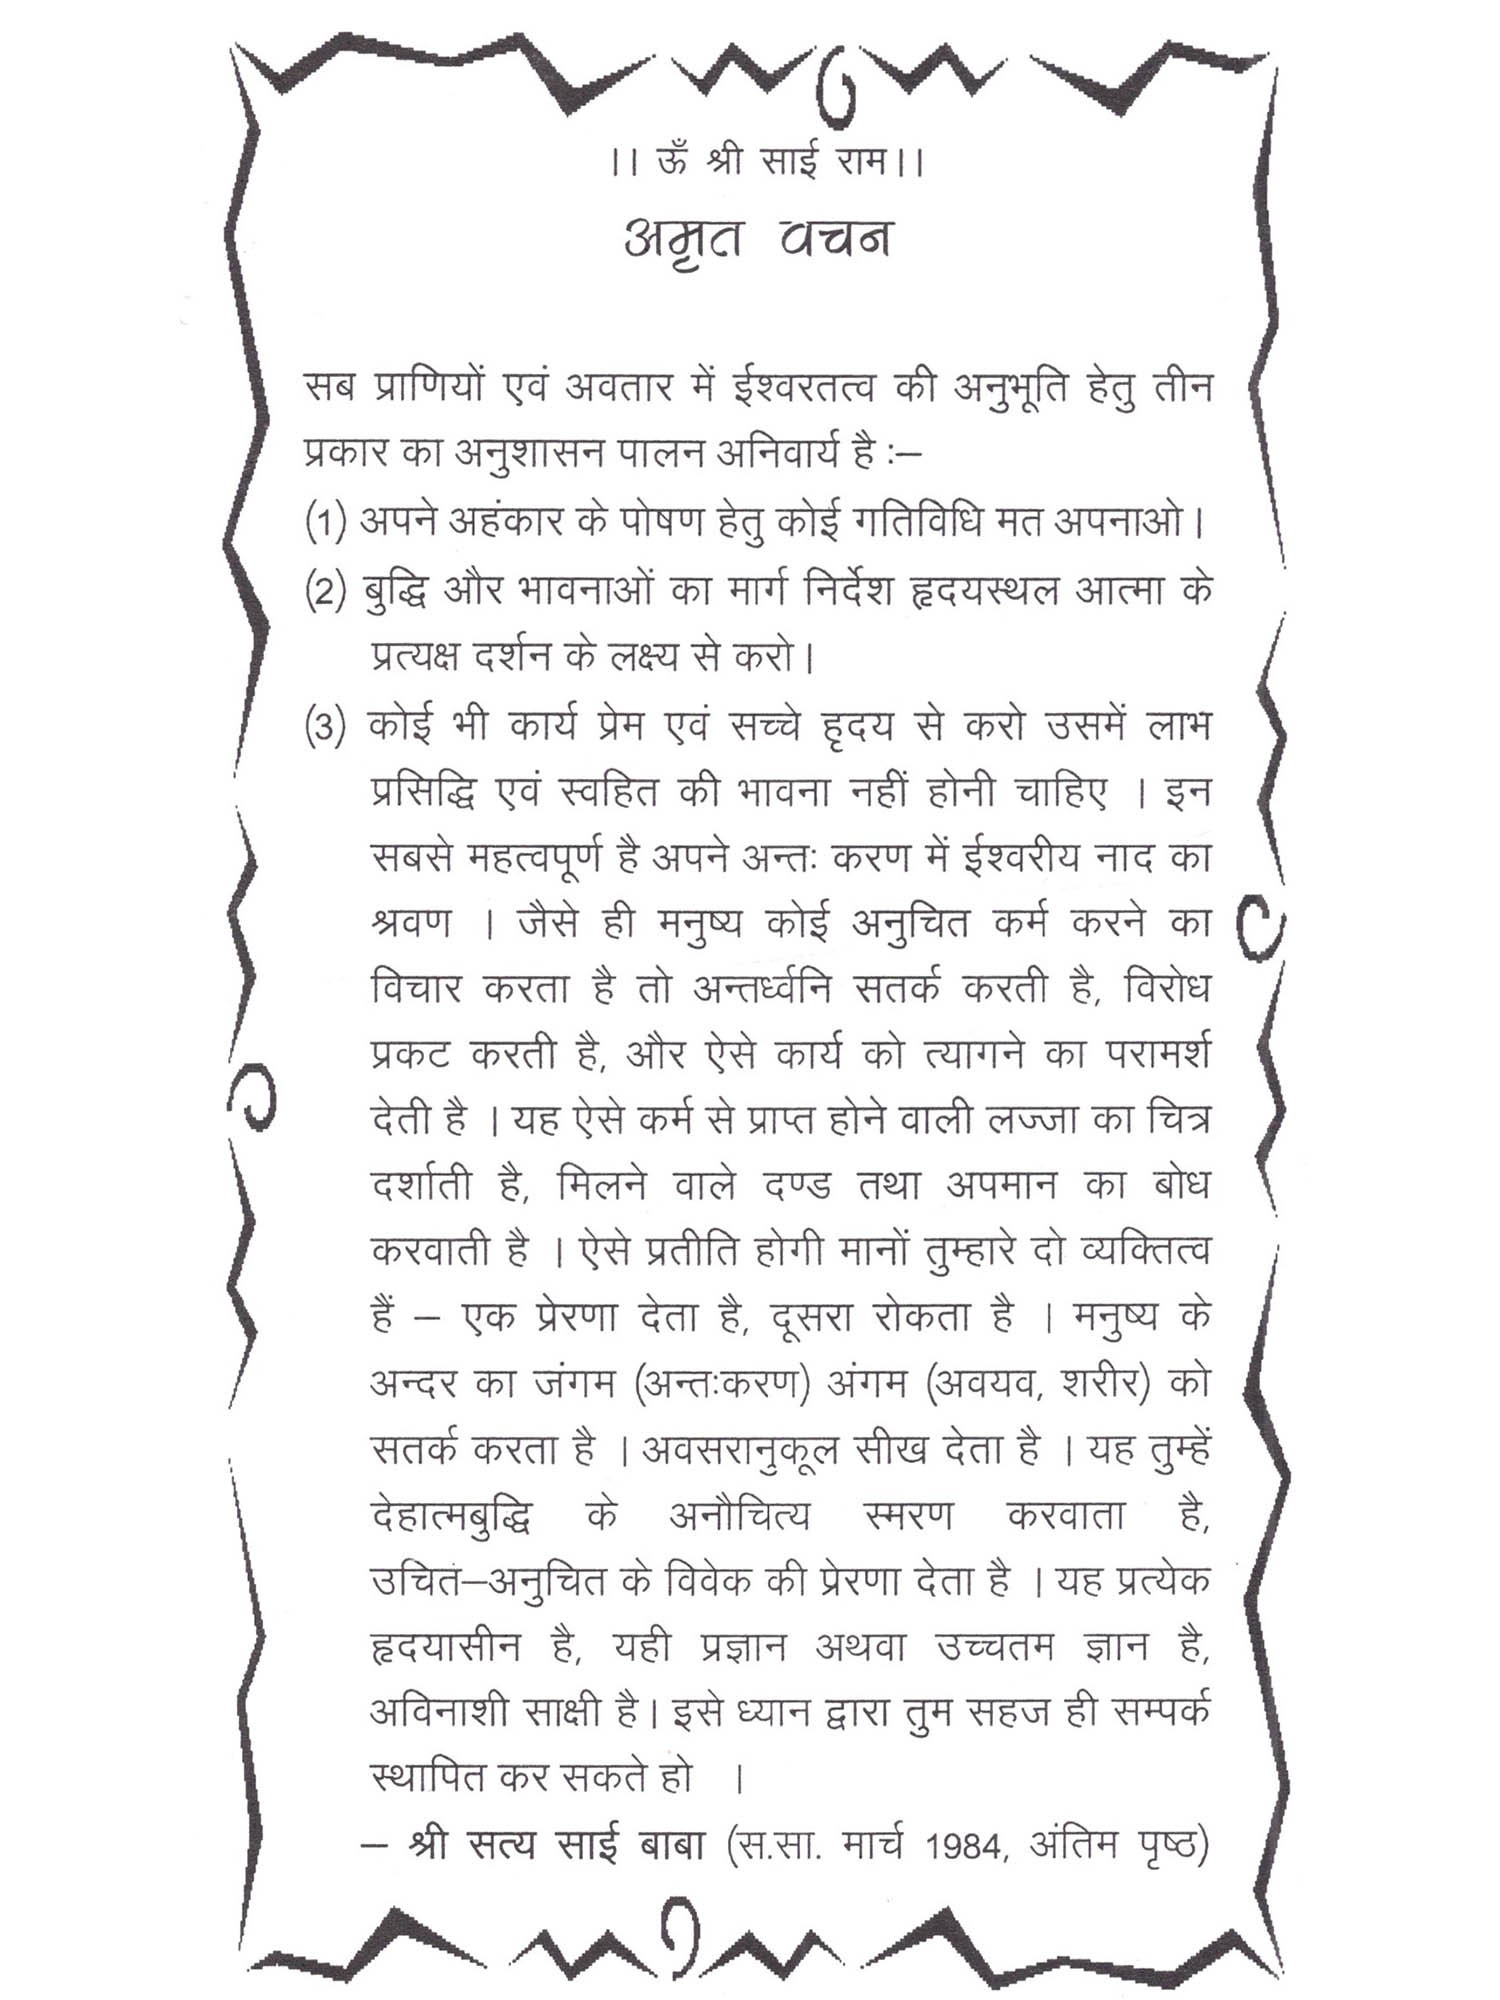 ।। ऊँ श्री साई राम।।
अमृत वचन
सब प्राणियों एवं अवतार में ईश्वरतत्व की अनुभूति हेतु तीन
प्रकार का अनुशासन पालन अनिवार्य है :–
(1) अपने अहंकार के पोषण हेतु कोई गतिविधि मत अपनाओ।
(2) बुद्धि और भावनाओं का मार्ग निर्देश हृदयस्थल आत्मा के
प्रत्यक्ष दर्शन के लक्ष्य से करो।
(3) कोई भी कार्य प्रेम एवं सच्चे हृदय से करो उसमें लाभ
प्रसिद्धि एवं स्वहित की भावना नहीं होनी चाहिए । इन
सबसे महत्वपूर्ण है अपने अन्तः करण में ईश्वरीय नाद का
श्रवण । जैसे ही मनुष्य कोई अनुचित कर्म करने का
विचार करता है तो अन्तर्ध्वनि सतर्क करती है, विरोध
प्रकट करती है, और ऐसे कार्य को त्यागने का परामर्श
देती है । यह ऐसे कर्म से प्राप्त होने वाली लज्जा का चित्र
दर्शाती है, मिलने वाले दण्ड तथा अपमान का बोध
करवाती है । ऐसे प्रतीति होगी मानों तुम्हारे दो व्यक्तित्व
हैं – एक प्रेरणा देता है, दूसरा रोकता है । मनुष्य के
अन्दर का जंगम (अन्तःकरण) अंगम (अवयव, शरीर) को
सतर्क करता है । अवसरानुकूल सीख देता है । यह तुम्हें
देहात्मबुद्धि के अनौचित्य स्मरण करवाता है,
उचित–अनुचित के विवेक की प्रेरणा देता है । यह प्रत्येक
हृदयासीन है, यही प्रज्ञान अथवा उच्चतम ज्ञान है,
अविनाशी साक्षी है। इसे ध्यान द्वारा तुम सहज ही सम्पर्क
स्थापित कर सकते हो ।
– श्री सत्य साई बाबा (स.सा. मार्च 1984, अंतिम पृष्ठ)